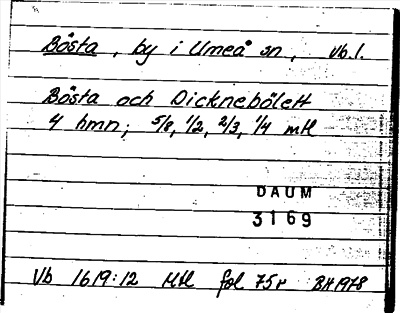 Bösta, by i Umeå sn, Vb.l.
Bösta och Dicknebölett
4 hmn; 5/8, 1/2, 2/3, 1/4 mtl
DAUM
3169
Vb 1619:12 Mtl fol 75r BH 1978